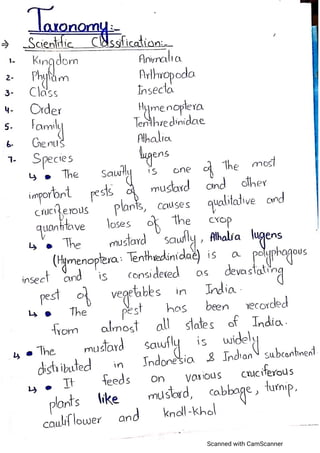 Taxonomy:-
⇒ Scientific Classification:-
1- Kingdom Animalia
2- Phylum Arthropoda
3- Class Insecta
4- Order Hymenoptera
5. Family Tenthredinidae
6. Genus Athalia
7- Species lugens
↳ • The sawfly is one of the most
important pests of mustard and other
cruciferous plants, causes qualitative and
quantitave loses of the crop
↳ • The mustard sawfly, Athalia lugens
(Hymenoptera: Tenthredinidae) is a polyphagous
insect and is considered as devastating
pest of vegetables in India.
↳ • The pest has been recorded
from almost all states of India.
↳ • The mustard sawfly is widely
distributed in Indonesia & Indian subcontinent
↳ • It feeds on various cruciferous
plants like mustard, cabbage, turnip,
cauliflower and knoll-khol
Scanned with CamScanner